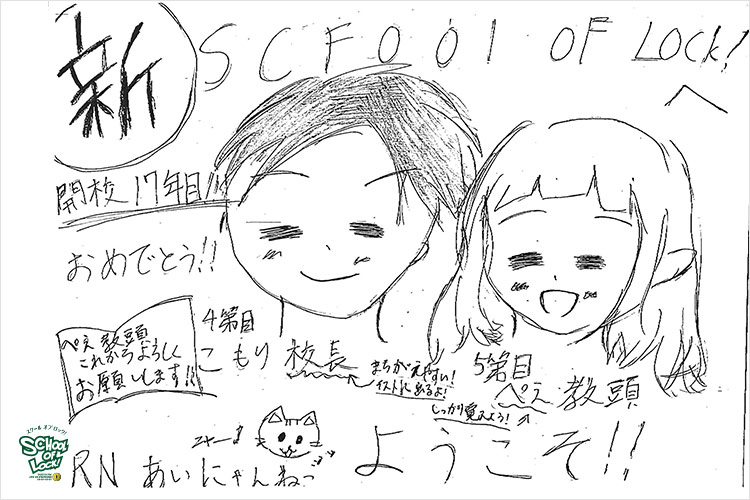 新 SCFOOl OF LOCK!
へ
開校17年目!!
おめでとう!!
ぺえ教頭
これからよろしく
お願いします!!
4第目
こもり校長
まちがえやすい!
5第目
ぺえ教頭
しっかり覚えよう!
ニャーま
RN あいにゃんねこ
ようこそ!!
スクール オブ ロック!
SCHOOL
OF
LOCK!